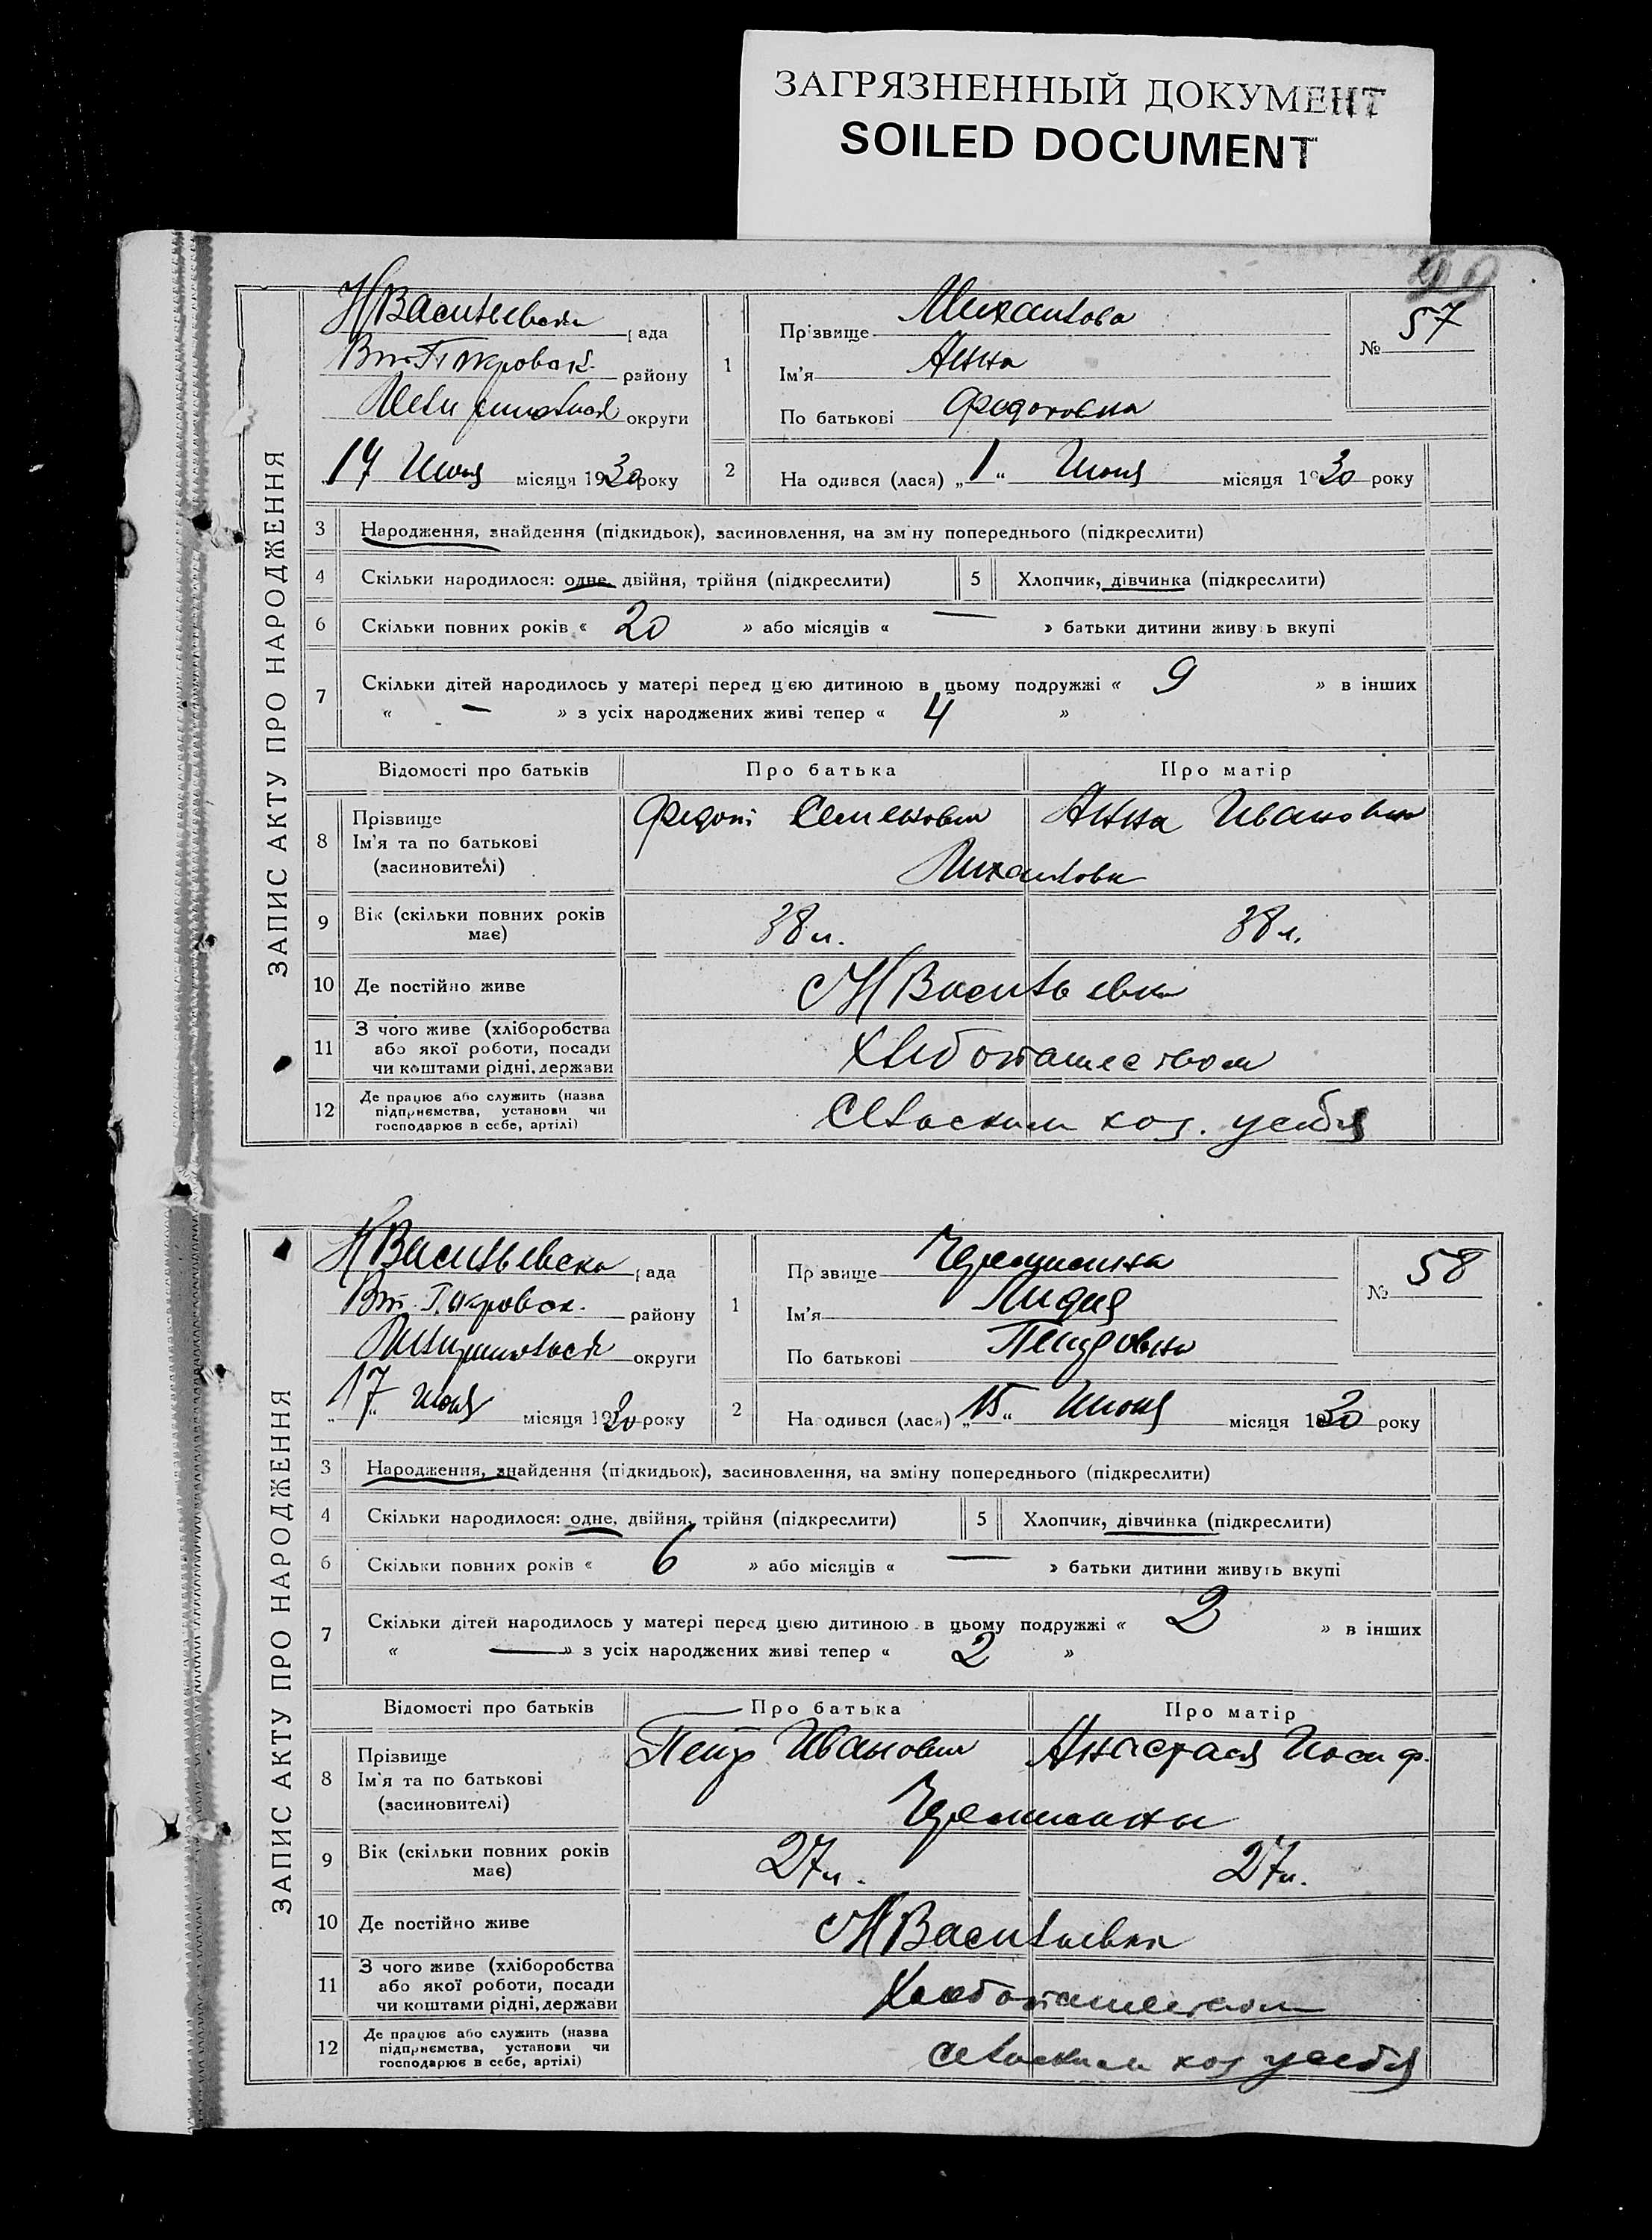 ЗАГРЯЗНЕННЫЙ ДОКУМЕНТ
SOILED DOCUMENT
ЗАПИС АКТУ ПРО НАРОДЖЕННЯ
НВасильевская рада
району
округи
17 Июня місяця 1930 року
1
Прізвище Михайлова
Ім'я Анна
По батькові Федоровна
№ 57
2
На одився (лася) „1“ Июня місяця 1930 року
3 Народження, знайдення (підкидьок), засиновлення, на зміну попереднього (підкреслити)
4 Скільки народилося: одне, двійня, трійня (підкреслити)
5 Хлопчик, дівчинка (підкреслити)
6 Скільки повних років « 20 » або місяців « — » батьки дитини живуть вкупі
7 Скільки дітей народилось у матері перед цією дитиною в цьому подружжі « 9 » в інших
« — » з усіх народжених живі тепер « 4 »
Відомості про батьків Про батька Про матір
8 Прізвище
Ім'я та по батькові
(засновителі)
Федот Семенович Анна Ивановна
Михайловы
9 Вік (скільки повних років має) 38 л. 38 л.
10 Де постійно живе НВасильевка
11 З чого живе (хліборобства
або якої роботи, посади
чи коштами рідні, держави
Хлебопашеством
12 Де працює або служить (назва
підприємства, установи чи
господарює в себе, артілі)
Сельским хоз. у себя
ЗАПИС АКТУ ПРО НАРОДЖЕННЯ
НВасильевска рада
району
округи
17 Июня місяця 1930 року
1
Прізвище
Ім'я Лидия
По батькові Петровна
№ 58
2
На одився (лася) „15“ Июня місяця 1930 року
3 Народження, знайдення (підкидьок), засиновлення, на зміну попереднього (підкреслити)
4 Скільки народилося: одне, двійня, трійня (підкреслити)
5 Хлопчик, дівчинка (підкреслити)
6 Скільки повних років « 6 » або місяців « — » батьки дитини живуть вкупі
7 Скільки дітей народилось у матері перед цією дитиною в цьому подружжі « 2 » в інших
« — » з усіх народжених живі тепер « 2 »
Відомості про батьків Про батька Про матір
8 Прізвище
Ім'я та по батькові
(засиновителі)
Петр Иванович Анастасия Иосиф.
9 Вік (скільки повних років має) 27 л. 27 л.
10 Де постійно живе НВасильевка
11 З чого живе (хліборобства
або якої роботи, посади
чи коштами рідні, держави
Хлебопашеством
12 Де працює або служить (назва
підприємства, установи чи
господарює в себе, артілі)
сельским хоз у себя